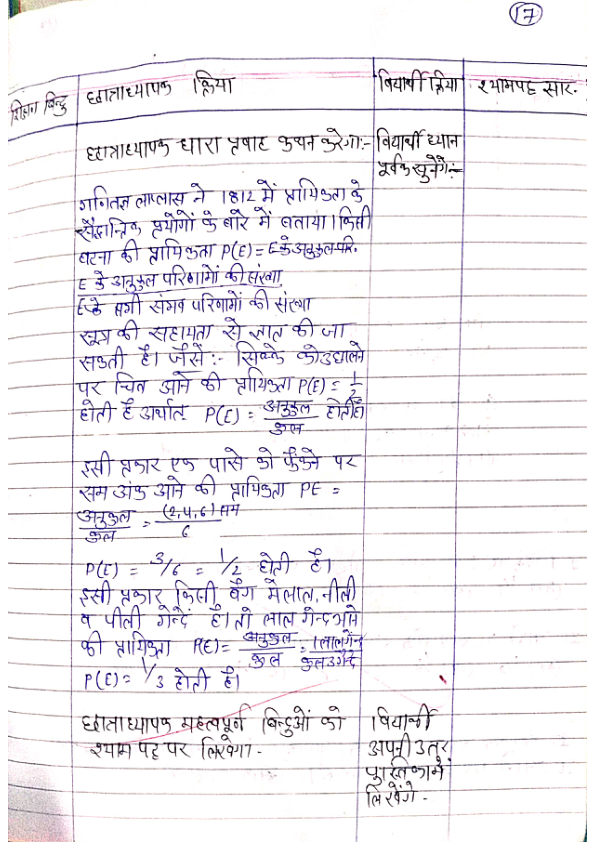 17
शिक्षण बिन्दु छात्राध्यापक क्रिया विद्यार्थी क्रिया श्यामपट्ट सार.
छात्राध्यापक धारा प्रवाह कथन करेगा:- विद्यार्थी ध्यान
पूर्वक सुनेंगे:-
गणितज्ञ लाप्लास ने 1812 में प्रायिकता के
सैद्धान्तिक प्रयोगों के बारे में बताया। किसी
घटना की प्रायिकता P(E) = E के अनुकूल परि.
E के अनुकूल परिणामों की संख्या
E के सभी संभव परिणामों की संख्या
सूत्र की सहायता से ज्ञात की जा
सकती है। जैसे:- सिक्के को उछालने
पर चित आने की प्रायिकता P(E) = 1/2
होती है अर्थात P(E) = अनुकूल/कुल होती है।
इसी प्रकार एक पासे को फेंकने पर
सम अंक आने की प्रायिकता PE =
अनुकूल/कुल = (2,4,6) सम/6
P(E) = 3/6 = 1/2 होती है।
इसी प्रकार किसी बैग में लाल, नीली
व पीली गेन्दें है। तो लाल गेन्द आने
की प्रायिकता P(E) = अनुकूल/कुल = 1 लाल गेन्द/कुल 3 गेन्दे
P(E) = 1/3 होती है।
छात्राध्यापक महत्वपूर्ण बिन्दुओं को विद्यार्थी
श्याम पट्ट पर लिखेगा - अपनी उतर
पुस्तिका में
लिखेंगे -